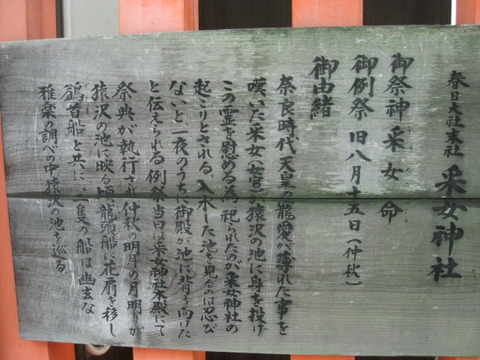 春日大社末社 采女神社
御祭神 采女命
御例祭 旧八月十五日(仲秋)
御由緒
奈良時代天皇の寵愛が薄れた事を
嘆いた采女(女官)が猿沢の池に身を投げ
この霊を慰める為、祀られたのが采女神社の
起こりとされる。入水した池を見るのは忍び
ないと一夜のうちに御殿が池に背を向けた
と伝えられる例祭当日は采女神社本殿にて
祭典が執行され仲秋の名月の月明りが
猿沢の池に映る頃龍頭船に花扇を移し
鷁首船と共に、二隻の船は幽玄な
雅楽の調べの中猿沢の池を巡る